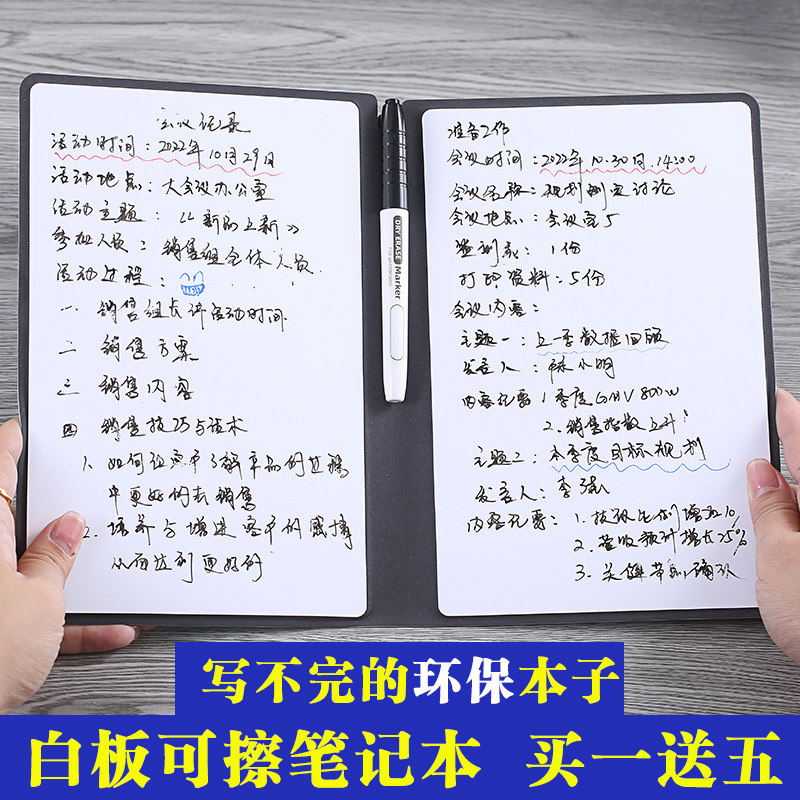 会议记录
活动时间：2022年10月29日
活动地点：大会议办公室
活动主题：《新品上新》
参加人员：销售组全体人员
活动过程：
一 销售组长讲活动时间
二 销售方案
三 销售内容
四 销售技巧与话术
1、如何让客户了解产品的过程
中更好的去销售
2、培养与增进客户的感情
从而达到更好的
DRY ERASE Marker
准备工作
会议时间：2022年10.30日.14:00
会议名称：规划制定讨论
会议地点：会议室5
签到表：1份
打印资料：5份
会议内容：
主题一：上一季数据回顾
发言人：林小明
内容纪要 1季度GMV 800W
2.销售指数上升
主题二：本季度目标规划
发言人：李强
内容纪要：1.
2.营收预计增长25%
3.
写不完的环保本子
白板可擦笔记本 买一送五